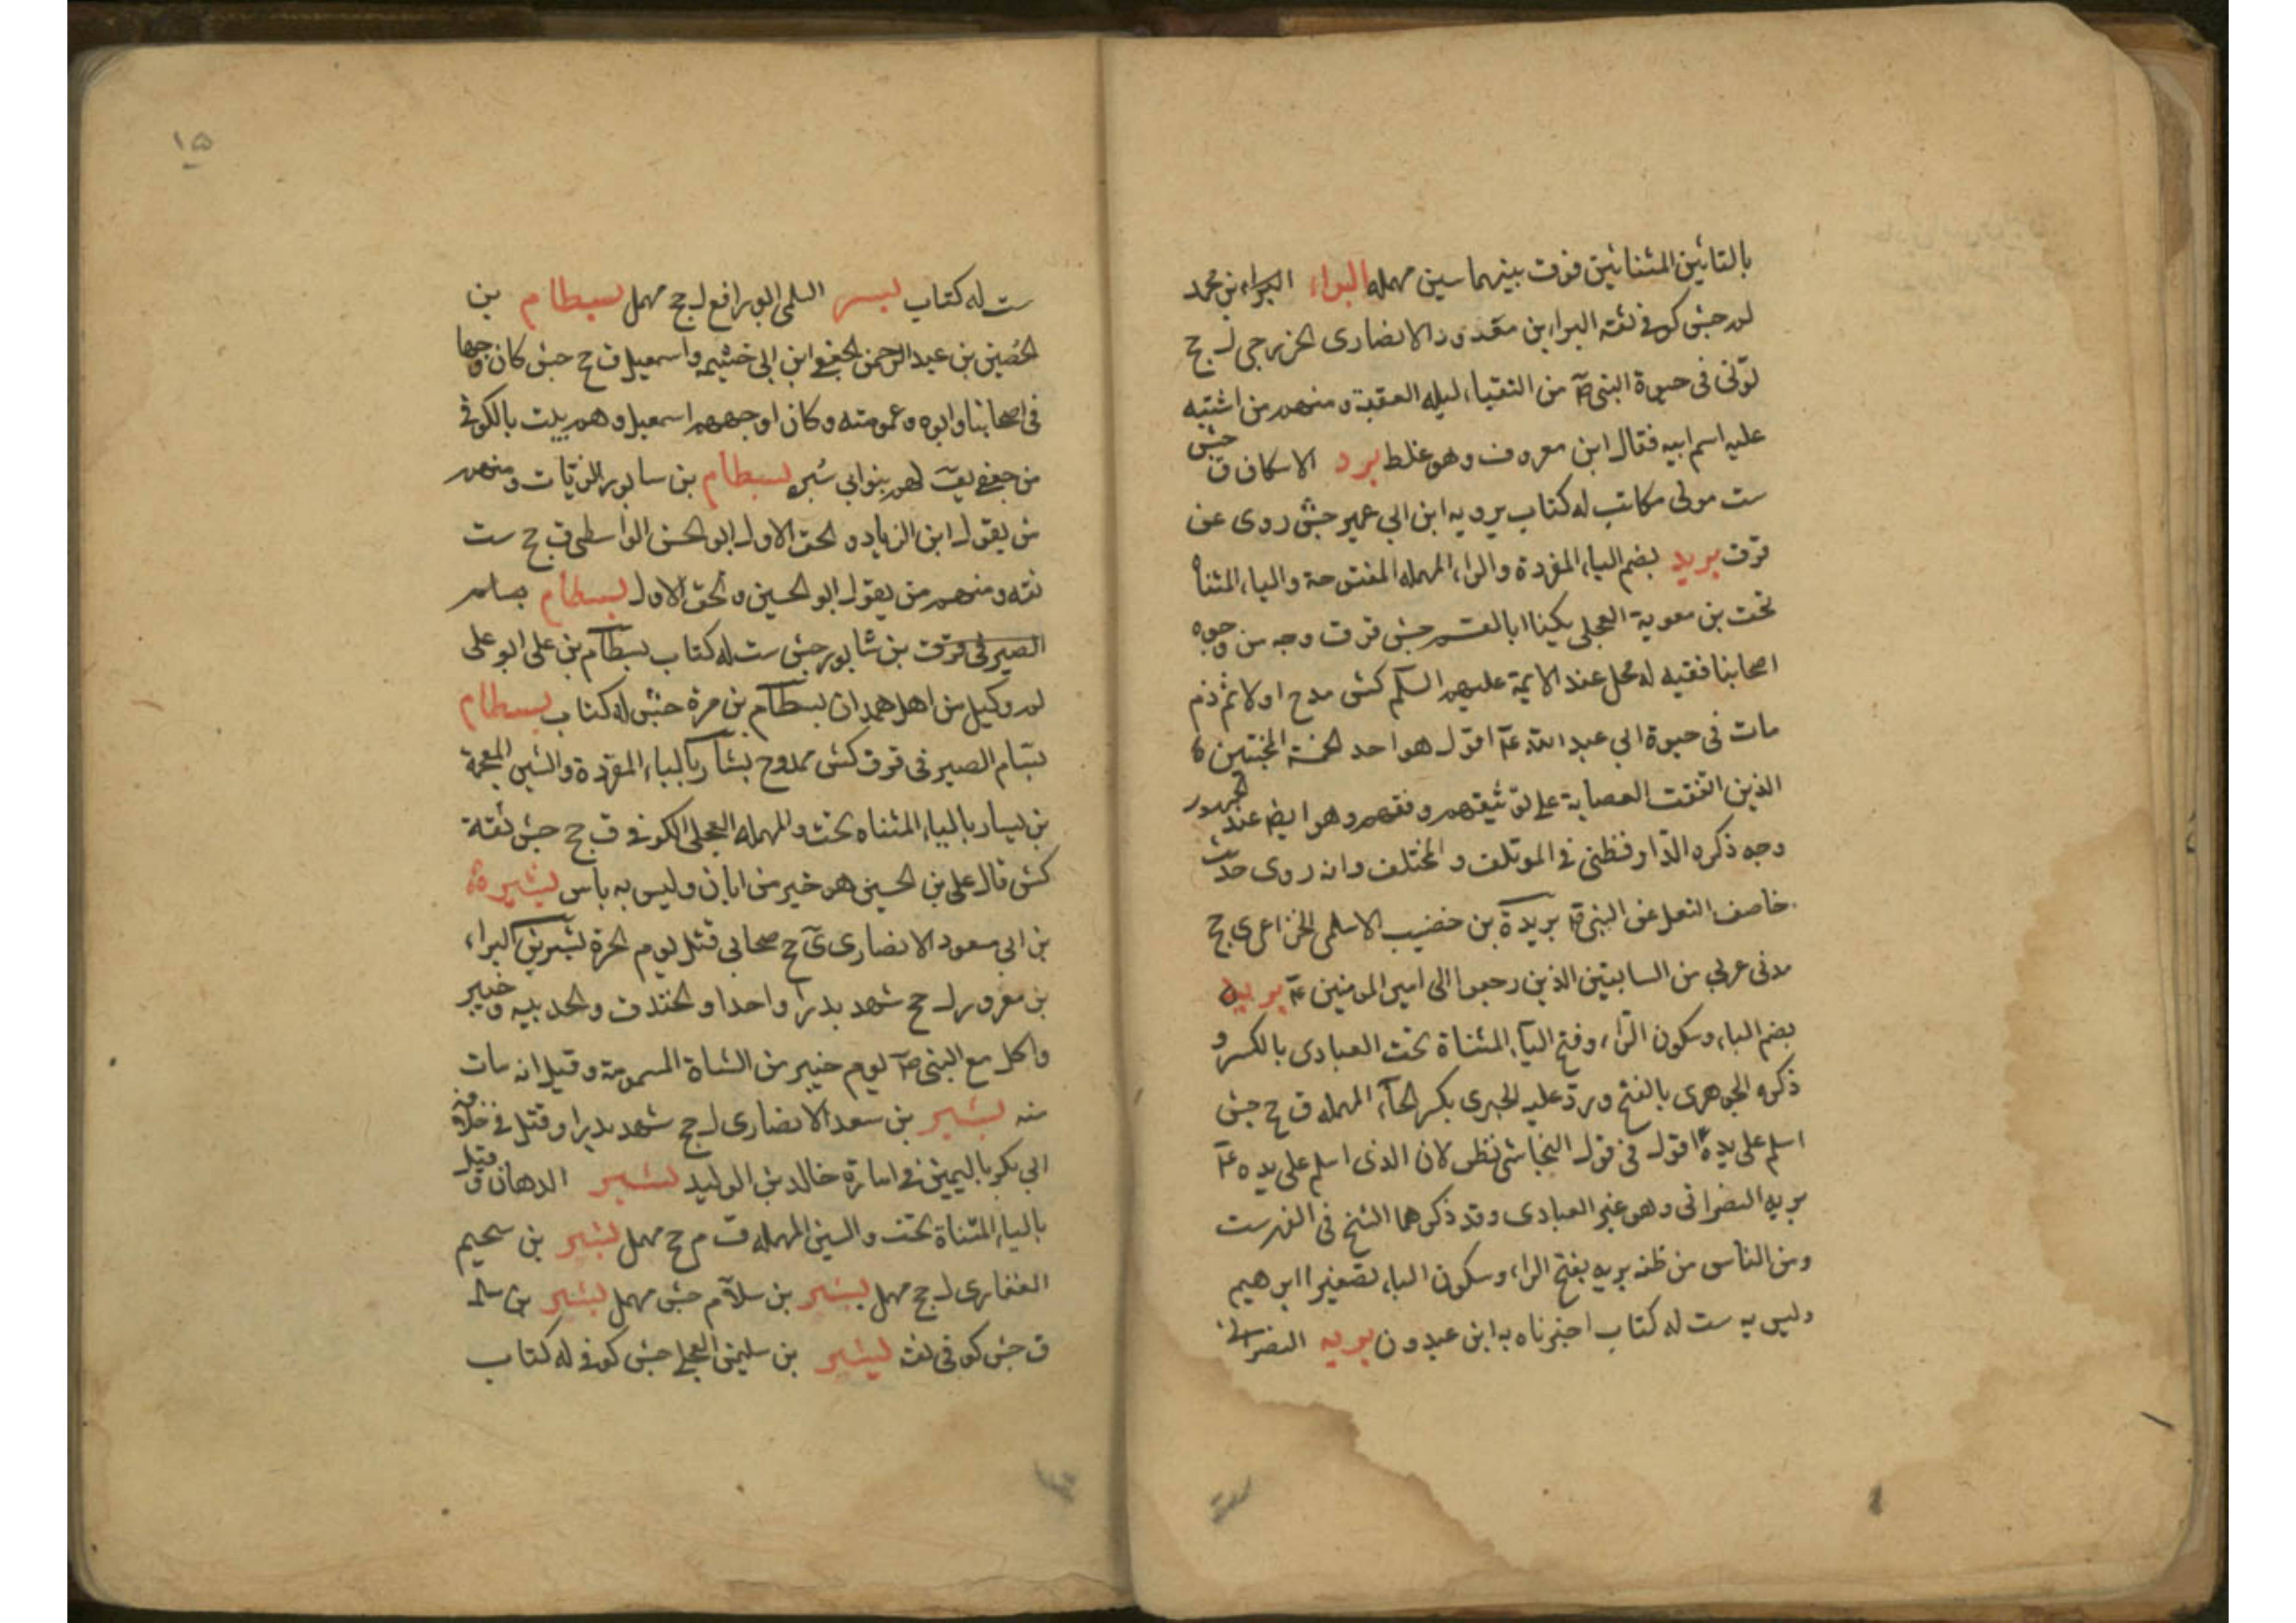 بالتائين المثناتين فوق بينهما سين مهمله البراء البراء بن محمد
لم جش كوفى ثقه البراء بن معرور الانصارى الخزرجى ل جح
توفى فى حيوة النبى ص من النقباء ليله العقبة ومنهم من اشتبه
عليه اسم ابيه فقال ابن معروف وهو غلط برد الاسكاف ق جش
ست مولى مكاتب له كتاب يرويه ابن ابى عمير جش روى عن
قر ق بريد بضم الباء المفردة والراء المهمله المفتوحة والياء المثناة
تحت بن معوية العجلى يكنا ابا القسم جش قر ق وجه من وجوه
اصحابنا فقيه له محل عند الايمة عليهم السلم كش مدح اولا ثم ذم
مات فى حيوة ابى عبد الله ع اقول هو احد الخمسة المخبتين
الذين اتفقت العصابة على توثيقهم وفقههم وهو ايضا عند الجمهور
وجه ذكره الدارقطنى فى الموتلف والمختلف وانه روى حديث
خاصف النعل عن النبى ص بريدة بن خضيب الاسلمى الخزاعى ى جح
مدنى عربى من السابقين الذين رجعوا الى امير المومنين ع بريه
بضم الباء وسكون الراء وفتح الياء المثناة تحت العبادى بالكسر و
ذكره الجوهرى بالفتح ورد عليه الحيرى بكسر الحاء المهمله ق جح جش
اسلم على يده ع اقول فى قول النجاشى نظر لان الذى اسلم على يده ع
بريه النصرانى وهو غير العبادى وقد ذكرهما الشيخ فى الفهرست
ومن الناس من ظنه بريه بفتح الراء وسكون الياء تصغير ابرهيم
وليس به ست له كتاب اخبرناه به ابن عبدون بريه النصرانى
١٥
ست له كتاب بسر السلمى ابو رافع ل جح مهمل بسطام بن
الحصين بن عبد الرحمن الجعفى ابن ابى خثيمه واسمعيل ق جح جش كان وجها
فى اصحابنا وابوه وعمومته وكان اوجههم اسمعيل وهم بيت بالكوفة
من جعفى يقـ لهم بنو ابى سبره بسطام بن سابور الزيات ومنهم
من يقول ابن الزياد والحق الاول ابو الحسن الواسطى ق جح ست
ثقه ومنهم من يقول ابو الحسين والحق الاول بسطام بياع
الصيرفى ق ق بن شابور جش ست له كتاب بسطام بن على ابو على
لم وكيل من اهل همدان بسطام بن مرة جش له كتاب بسطام
بسام الصيرفى قر ق كش ممدوح بشار بالباء المفردة والشين المعجمة
بن يسار بالياء المثناه تحت والمهمله العجلى الكوفى ق جح جش ثقة
كش قال على بن الحسين هو خير من ابان وليس به باس بشير
بن ابى مسعود الانصارى ى جح صحابى قتل يوم الحرة بشر بن البراء
بن معرور ل جح شهد بدرا واحدا والخندق والحديبيه وخيبر
واكل مع النبى ص يوم خيبر من الشاة المسمومة وقيل انه مات
منه بشير بن سعد الانصارى ل جح شهد بدرا وقتل فى خلافة
ابى بكر باليمين فى امارة خالد بن الوليد بشير الدهان وقيل
بالياء المثناة تحت والسين المهمله ق م جح مهمل بشير بن سحيم
الغفارى ل جح مهمل بشير بن سلام جش مهمل بشير بن سلمه
ق جش كوفى ثقه بشير بن سليمن العجلى جش كوفى له كتاب